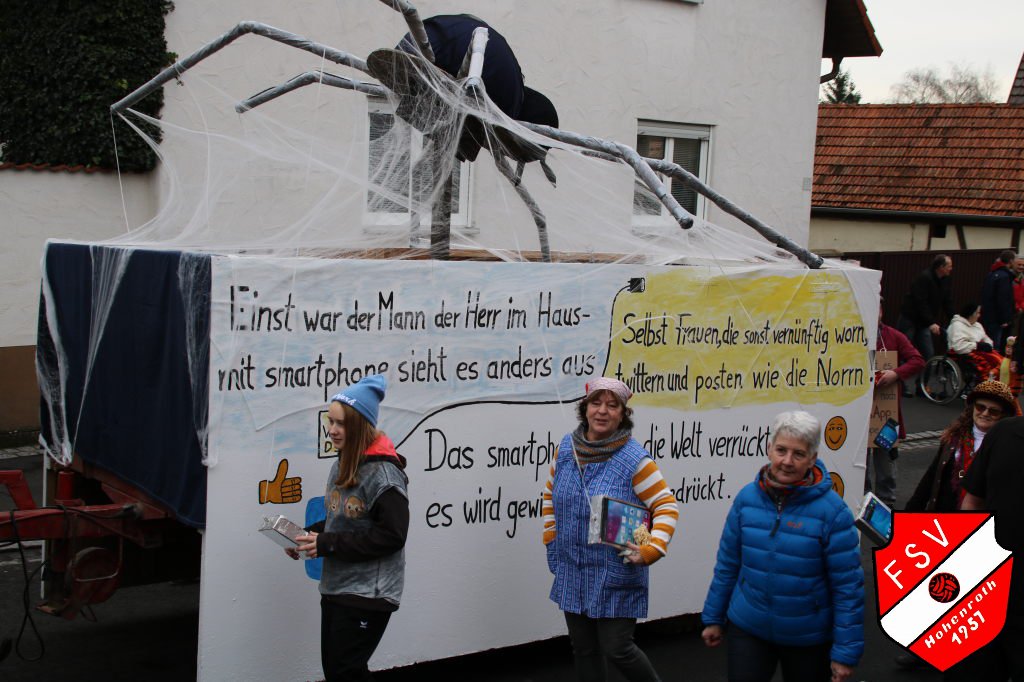 Einst war der Mann der Herr im Haus-
mit smartphone sieht es anders aus
Selbst Frauen, die sonst vernünftig worn,
twittern und posten wie die Norrn
Das smartph die Welt verrückt
es wird gewi drückt.
App
FSV
Hohenroth
1957